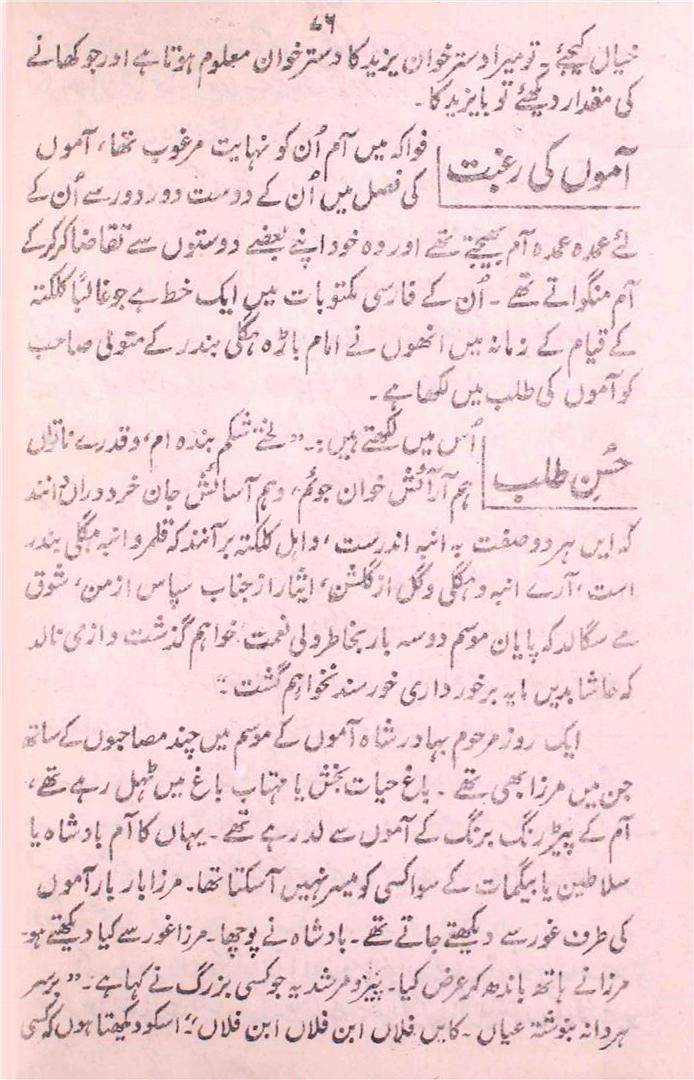 ۷۶
خیال کیجئے۔ تو میرا دسترخوان یزید کا دسترخوان معلوم ہوتا ہے اور جو کھانے
کی مقدار دیکھئے تو بایزید کا۔
آموں کی رغبت
فواکہ میں آم اُن کو نہایت مرغوب تھا، آموں
کی فصل میں اُن کے دوست دور دور سے اُن کے
لئے عمدہ عمدہ آم بھیجتے تھے اور وہ خود اپنے بعضے دوستوں سے تقاضا کرکر کے
آم منگواتے تھے۔ اُن کے فارسی مکتوبات میں ایک خط ہے جو غالباً کلکتہ
کے قیام کے زمانہ میں انھوں نے امام باڑہ ہگلی بندر کے متولی صاحب
کو آموں کی طلب میں لکھا ہے۔
حُسنِ طلب
اُس میں لکھتے ہیں:۔ "لختے شکم بندہ ام، وقدرے ناتواں
ہم آرائش خوان جوئم، وہم آسائش جان خرد وراں دانند
کہ ایں ہر دو صفت بہ انبہ اندرست، و اہل کلکتہ برآنند کہ قلمرو انبہ ہگلی بندر
است، آرے انبہ و ہگلی وگل از گلشن، ایثار از جناب سپاس از من، شوق
مے سگالد کہ پایان موسم دوسہ بار بخاطر ولی نعمت خواہم گذشت و آزمی نالد
کہ حاشا بدیں مایہ برخورداری خورسند نخواہم گشت۔"
ایک روز مرحوم بہادر شاہ آموں کے موسم میں چند مصاحبوں کے ساتھ
جن میں مرزا بھی تھے۔ باغ حیات بخش یا مہتاب باغ میں ٹہل رہے تھے،
آم کے پیڑ رنگ برنگ کے آموں سے لد رہے تھے۔ یہاں کا آم بادشاہ یا
سلاطین یا بیگمات کے سوا کسی کو میسر نہیں آسکتا تھا۔ مرزا بار بار آموں
کی طرف غور سے دیکھتے جاتے تھے۔ بادشاہ نے پوچھا۔ مرزا غور سے کیا دیکھتے ہو۔
مرزا نے ہاتھ باندھ کر عرض کیا۔ پیر و مرشد یہ جو کسی بزرگ نے کہا ہے۔ "برسر
ہر دانہ بنوشتہ عیاں۔ کایں فلاں ابن فلاں ابن فلاں"، اسکو دیکھتا ہوں کہ کسی